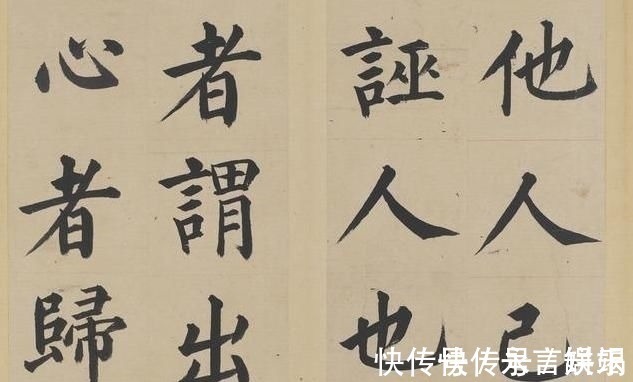 他人己
誣人也
者謂出
心者歸
快传